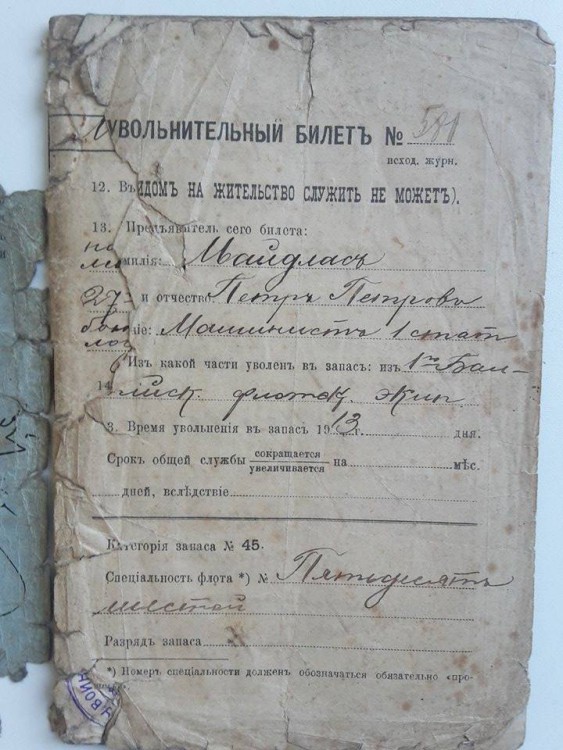 УВОЛЬНИТЕЛЬНЫЙ БИЛЕТЪ № 581
исход. журн.
12. ВѢДОМЪ НА ЖИТЕЛЬСТВО СЛУЖИТЬ НЕ МОЖЕТЪ).
13. Предъявитель сего билета:
милія: Майдласъ
27 и отчество Петръ Петровъ
ніе: Машинистъ 1 стат
Изъ какой части уволен въ запасъ: изъ 1го Бал-
14 тійск. флотск. экип.
3. Время увольненія въ запасъ 1913 г. дня.
Срокъ общей службы сокращается увеличивается на мѣс.
дней, вслѣдствіе
Категорія запаса № 45.
Спеціальность флота *) № Пятьдесятъ
шестой
Разрядъ запаса
*) Номеръ спеціальности долженъ обозначаться обязательно «про-